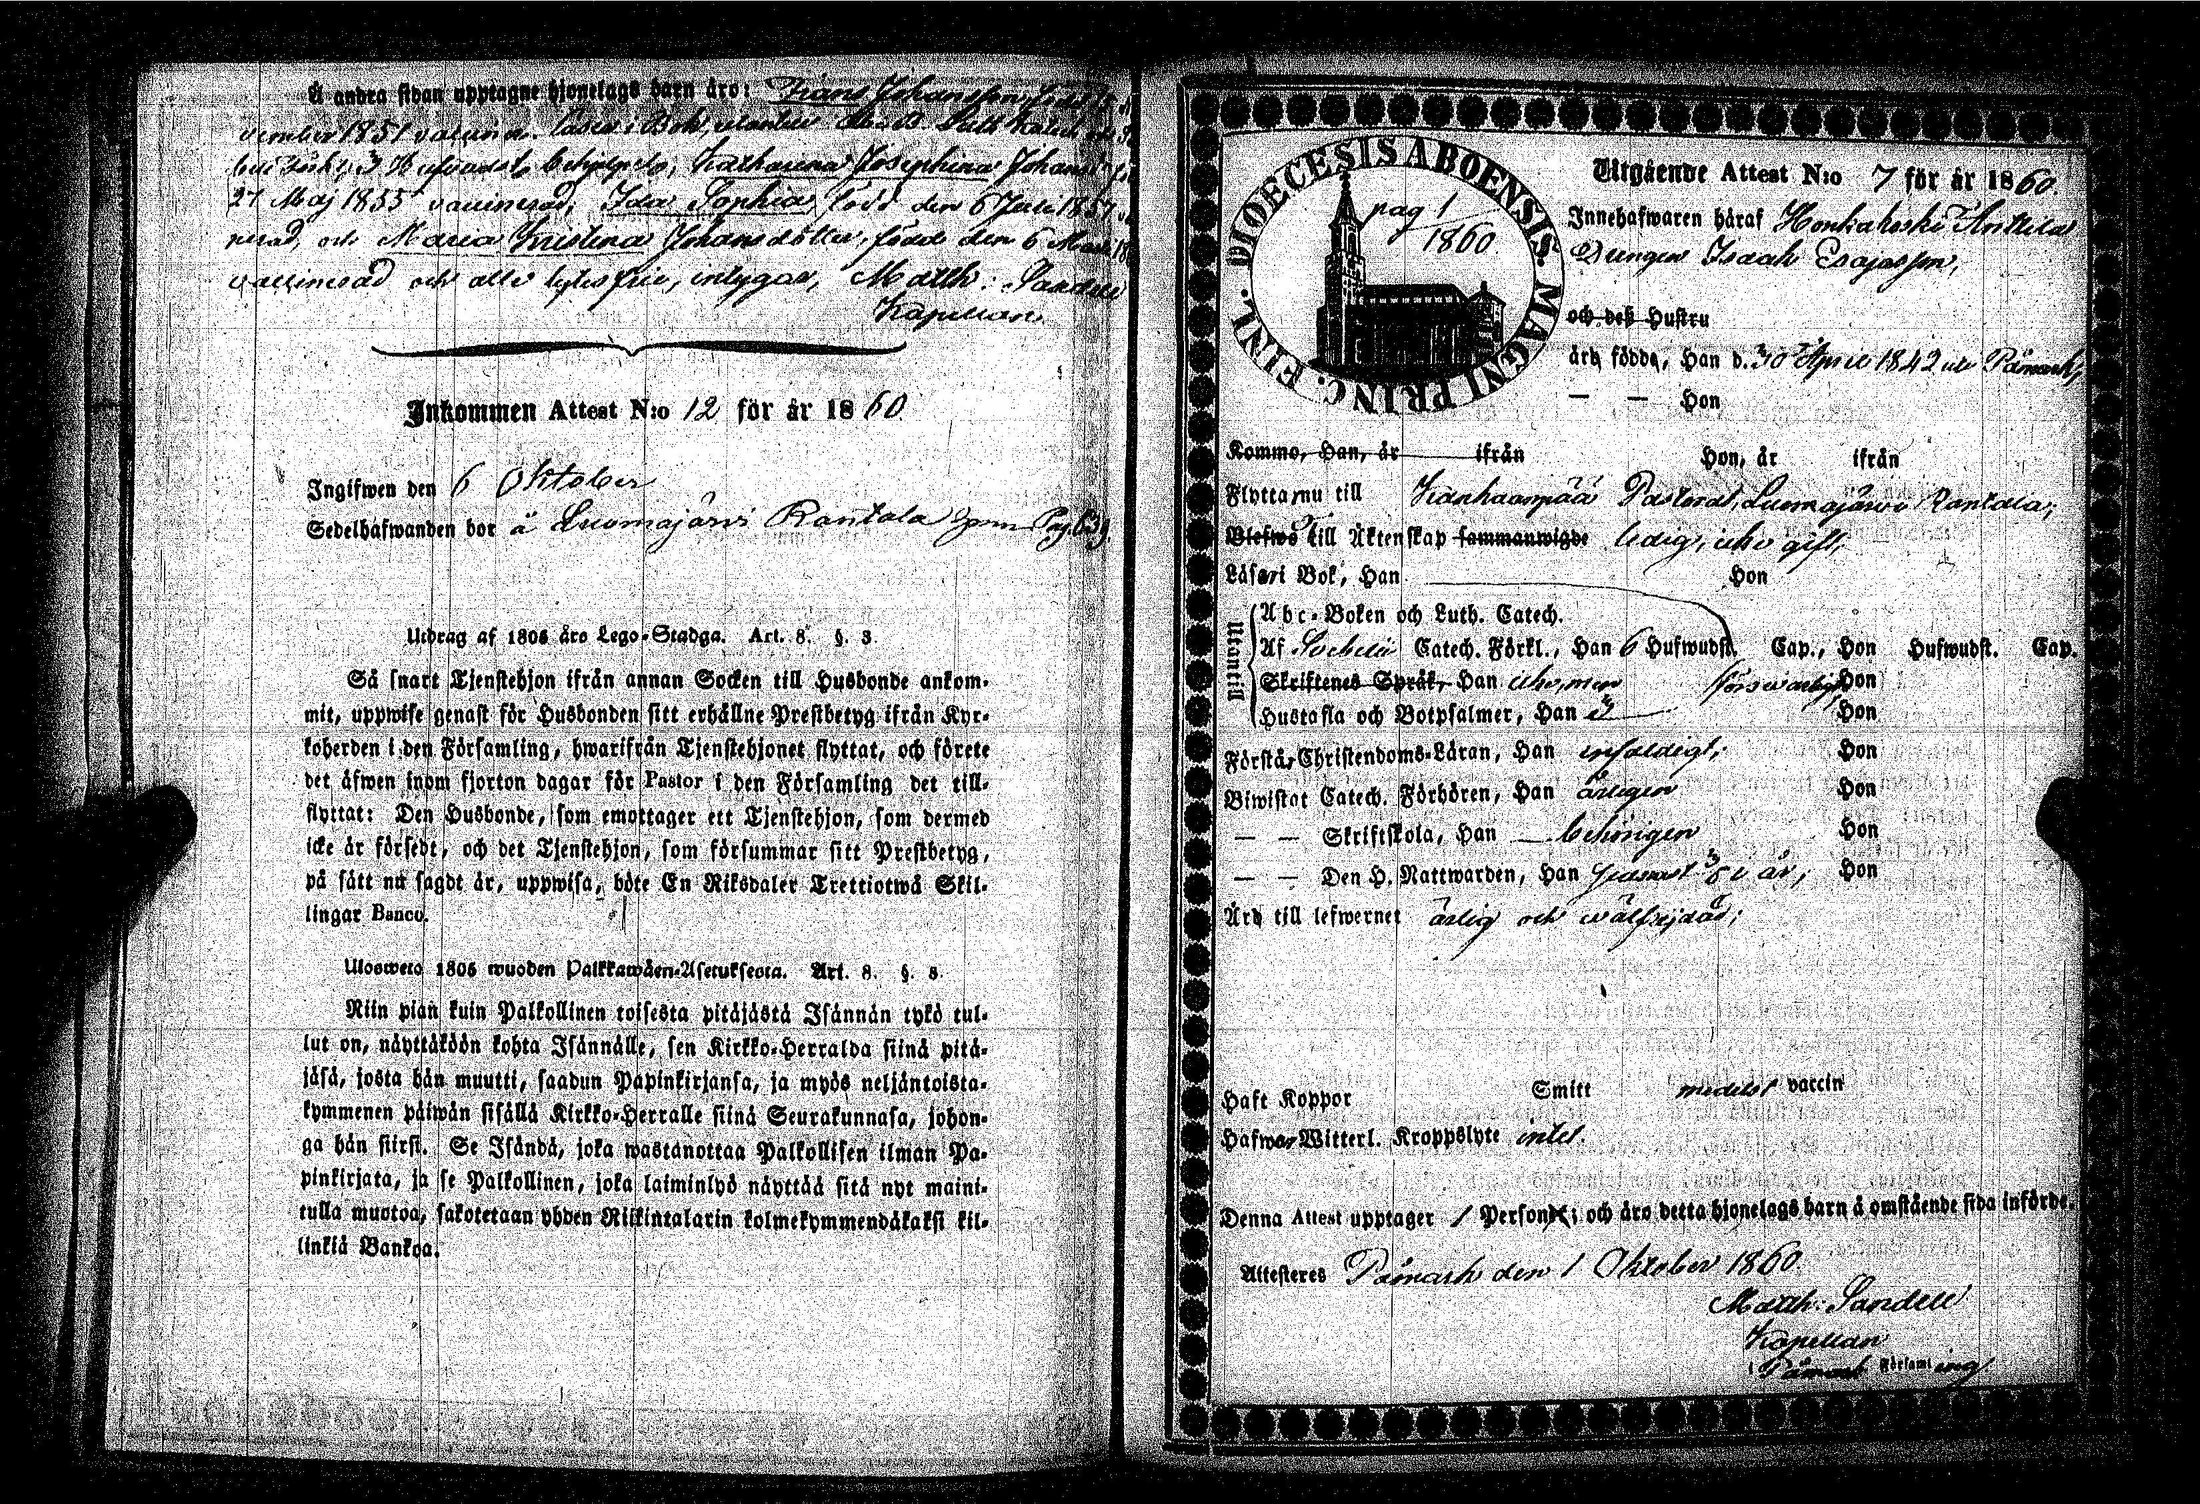 Å andra sidan upptagne hjonelags barn äro: Frans Johansson, född
vember 1851 vaccinerad. läser i Bok, utantill Luth. Kateches
3 Hufvudst. behjelpl., Katharina Josephina Johansd
27 Maj 1855 vaccinerad; Ida Sophia född den 6 Juli 1857
nerad, och Maria Kristina Johansdotter, född den 6 Mars
vaccinerad och alla lytesfrie, intygar, Matth: Sandell
Kapellan.
Inkommen Attest N:o 12 för år 1860.
Ingifwen den 6 Oktober
Sedelhafwanden bor å Luomajärvi Rantala Pag. 639.
Utdrag af 1805 års Lego-Stadga. Art. 8. §. 3.
Så snart Tjenstehjon ifrån annan Socken till Husbonde ankom-
mit, uppwise genast för Husbonden sitt erhållne Prestbetyg ifrån Kyr-
koherden i den Församling, hwarifrån Tjenstehjonet flyttat, och förete
det äfwen inom fjorton dagar för Pastor i den Församling det till-
flyttat: Den Husbonde, som emottager ett Tjenstehjon, som dermed
icke är försedt, och det Tjenstehjon, som försummar sitt Prestbetyg,
på sätt nu sagdt är, uppwisa, böte En Riksdaler Trettiotwå Skil-
lingar Banco.
Ulosweto 1805 wuoden Palkkawäen-Asetuksesta. Art. 8. §. 3.
Niin pian kuin Palkollinen toisesta pitäjästä Isännän tykö tul-
lut on, näyttäköön kohta Isännälle, sen Kirkko-Herralda siinä pitä-
jäsä, josta hän muutti, saadun Papinkirjansa, ja myös neljäntoista-
kymmenen päiwän sisällä Kirkko-Herralle siinä Seurakunnasa, johon-
ga hän siirsi. Se Isändä, joka wastanottaa Palkollisen ilman Pa-
pinkirjata, ja se Palkollinen, joka laiminlyö näyttää sitä nyt maini-
tulla muotoa, sakotetaan yhden Riikintalarin kolmekymmendäkaksi kil-
linkiä Bankoa.
DIOECESIS ABOENSIS. MAGNI PRINC. FINL.
pag 1
1860.
Utgående Attest N:o 7 för år 1860.
Innehafwaren häraf Honkakoski Anttila
Drengen Isaak Esajasson,
och deß Hustru
äro födde, Han d. 30 April 1842 uti Påmark,
— — Hon
Komme, Han, år ifrån Hon, år ifrån
Flytta nu till Kankaanpää Pastorat, Luomajärvi Rantala;
Blefwo till Äktenskap sammanwigde ledig, icke gift,
Läser i Bok, Han Hon
Utantill
Abc-Boken och Luth. Catech.
Af Svebelii Catech. Förkl., Han 6 Hufwudst. Cap., Hon Hufwudst. Cap.
Skriftenes Språk, Han icke, men försvarligt, Hon
Hustafla och Botpsalmer, Han Hon
Förstår Christendoms-Läran, Han enfaldigt; Hon
Biwistat Catech. Förhören, Han årligen Hon
— — Skriftskola, Han behörigen Hon
— — Den H. Nattwarden, Han senast i år, Hon
Äro till lefwernet ärlig och wälfrejdad;
Haft Koppor Smitt medelst vaccin
Hafwer Witterl. Kroppslyte intet.
Denna Attest upptager 1 Person; och äro detta hjonelags barn å omstående sida införde.
Attesteres Påmark den 1 Oktober 1860.
Matth: Sandell
Kapellan
i Påmark Församling